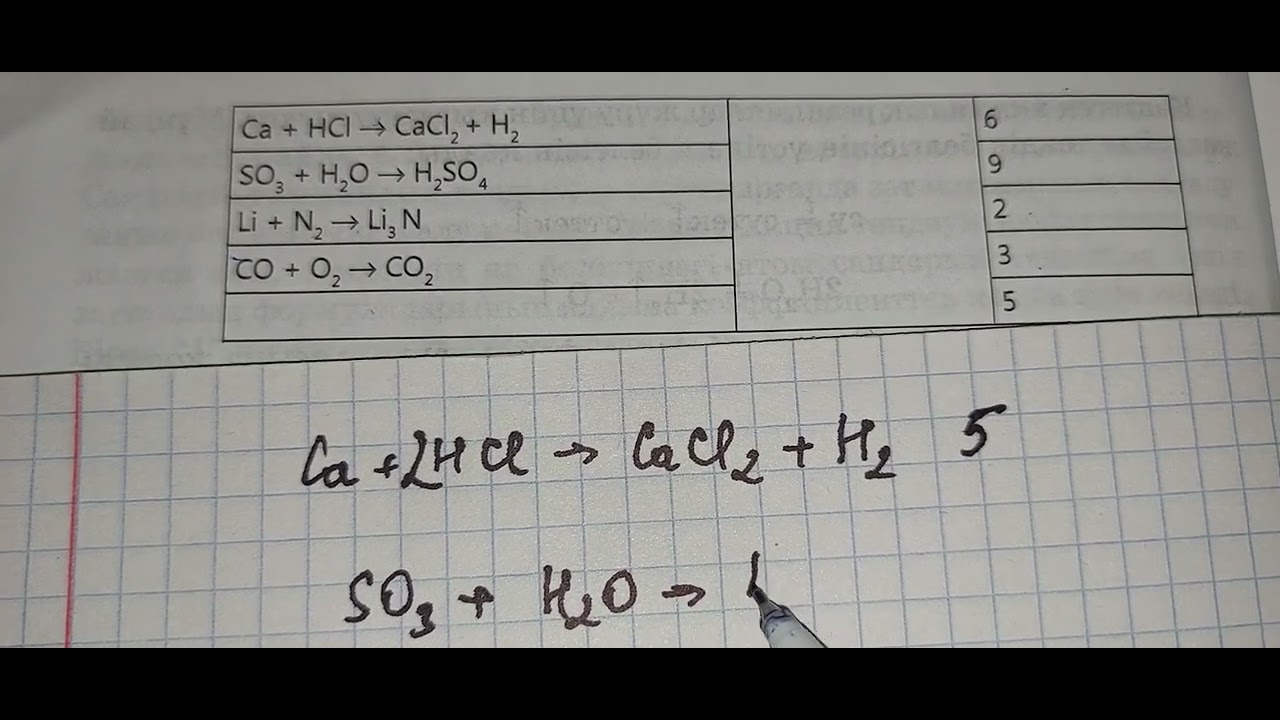 Ca + HCl → CaCl₂ + H₂ 6
SO₃ + H₂O → H₂SO₄ 9
Li + N₂ → Li₃N 2
CO + O₂ → CO₂ 3
5
Ca + 2HCl → CaCl₂ + H₂ 5
SO₃ + H₂O →